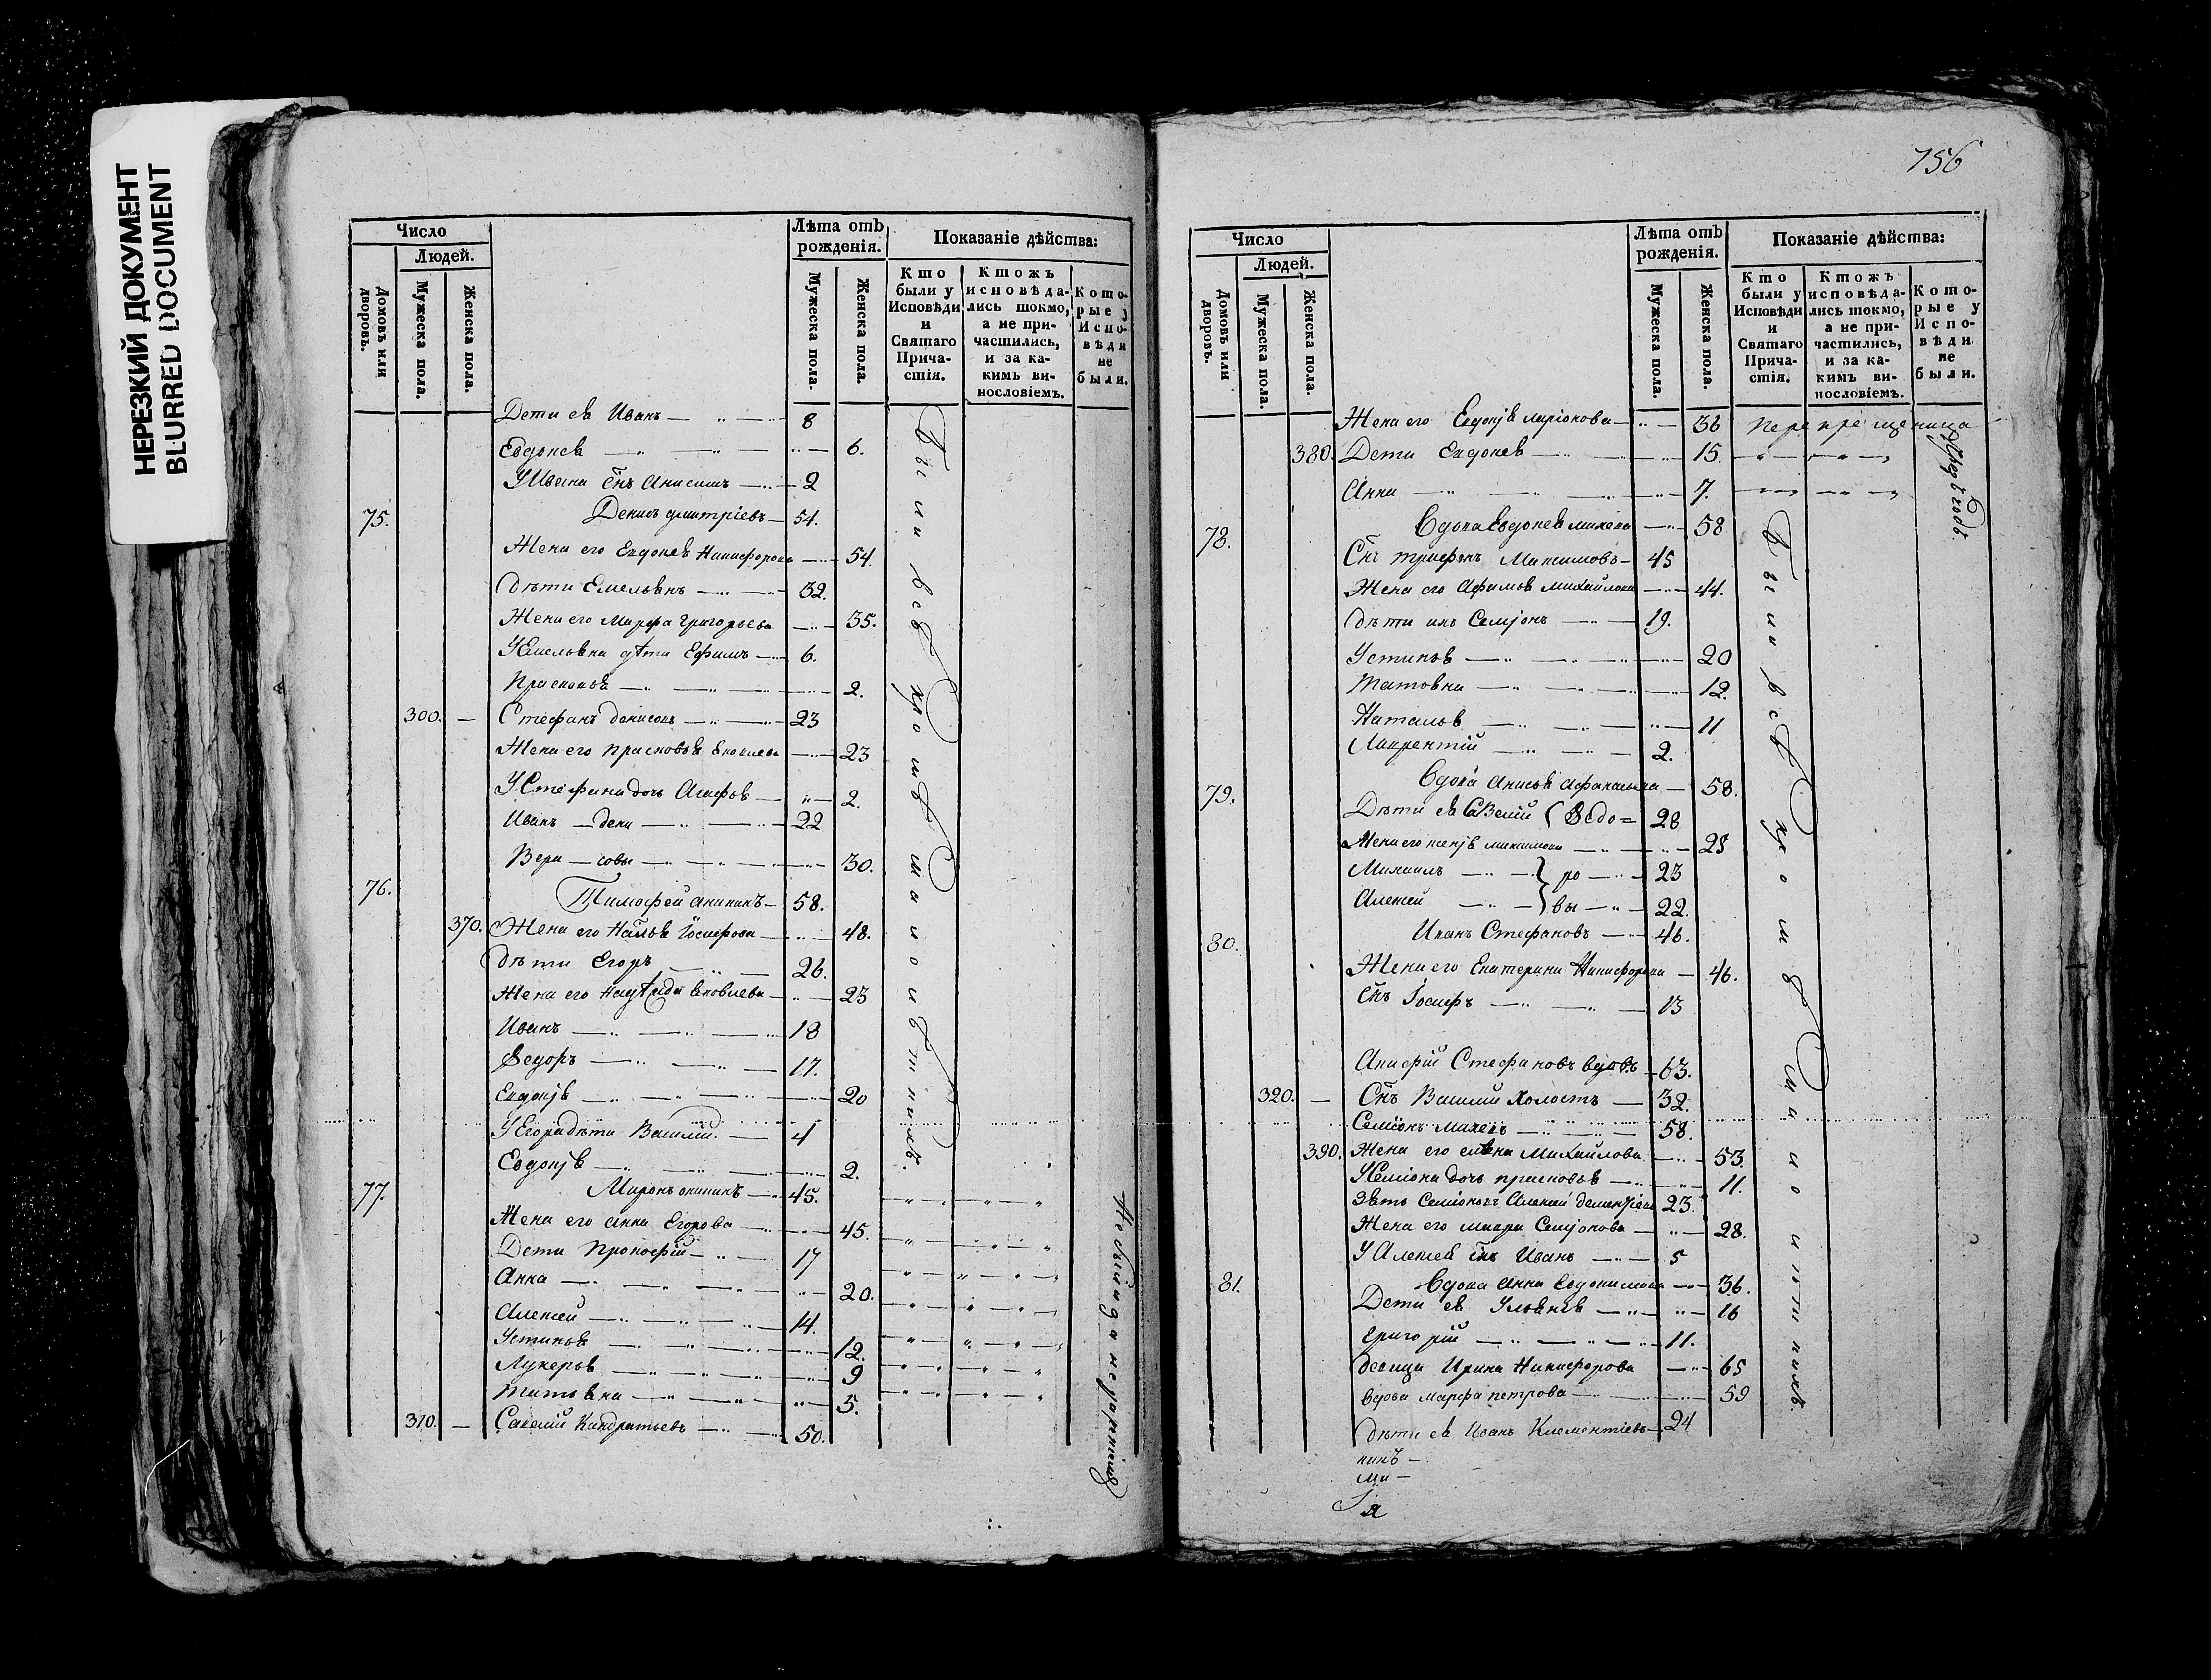 НЕРЕЗКИЙ ДОКУМЕНТ
BLURRED DOCUMENT
Число
Людей.
Домовъ или дворовъ.
Мужеска пола.
Женска пола.
Лѣта отъ рожденія.
Мужеска пола.
Женска пола.
Показаніе дѣйства:
Кто были у Исповѣди и Святаго Прича-стія.
Ктожъ исповѣда-лись токмо, а не при-частились, и за ка-кимъ ви-нословіемъ.
Кото-рые у Испо-вѣди не были.
Дети ея Иванъ 8
Евдокея 6.
У Ивана Снъ Анисимъ 2
75. Денисъ Дмитріевъ 54.
Жена его Евдокея Никифорова 54.
Дѣти Емельянъ 32.
Жена его Марфа Григорьева 35.
У Емельяна дѣти Ефимъ 6.
Прасковья 2.
300. Стефанъ Денисовъ 23
Жена его Прасковья Яковлева 23
У Стефана дочь Агафья 2.
Иванъ — дени 22
Вера — совы 30.
76. Тимофей Аникинъ 58.
370. Жена его Наталья Іосифова 48.
Дѣти Егоръ 26.
Жена его Яковлева 23
Иванъ 18
Ѳедоръ 17.
Евдокія 20
У Егора дѣти Василій 4
Евдокія 2.
77. Миронъ Аникинъ 45.
Жена его Анна Егорова 45.
Дети Прокофій 17
Анна 20.
Алексей 14.
Устинья 12.
Лукерья 9
Татьяна 5.
310. Савелій Кондратьевъ 50.
Были вся кромѣ малолѣтнихъ.
756
Число
Людей.
Домовъ или дворовъ.
Мужеска пола.
Женска пола.
Лѣта отъ рожденія.
Мужеска пола.
Женска пола.
Показаніе дѣйства:
Кто были у Исповѣди и Святаго Прича-стія.
Ктожъ исповѣда-лись токмо, а не при-частились, и за ка-кимъ ви-нословіемъ.
Кото-рые у Испо-вѣди не были.
Жена его Евдокія Ларіонова 36
380. Дети Евдокея 15.
Анна 7.
78. Вдова Евдокея 58
Снъ Трифонъ Максимовъ 45
Жена его Афимья Михайлова 44.
Дѣти ихъ Семіонъ 19.
Устинья 20
Татьяна 12.
Наталья 11
Лаврентій 2.
79. Вдова Анисья Афанасьева 58.
Дѣти ея Ѳедо= 28
Жена его Максимова 25
Михаилъ ро 23
Алексей вы 22.
80. Иванъ Стефановъ 46.
Жена его Екатерина Никифорова 46.
Снъ Іосифъ 13
Стефановъ вдовъ 63.
320. Снъ Василій холостъ 32.
Семіонъ 58.
390. Жена его Елена Михайлова 53.
У Семіона дочь Прасковья 11.
Зять Семіоновъ Алексей Дементіевъ 23.
Жена его Мавра Семіонова 28.
У Алексея Снъ Иванъ 5
81. Вдова Анна Евдокимова 36.
Дети ея Ульяна 16
Григорій 11.
Девица Ирина Никифорова 65
Вдова Марфа Петрова 59
Дѣти ея Иванъ Клементіевъ 24
Были вся кромѣ малолѣтнихъ.